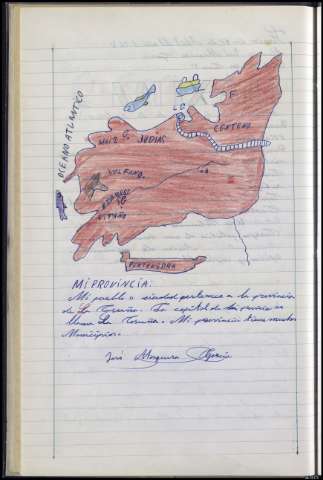 OCEANO ATLANTICO
LC
F
CENTENO
MAIZ
JUDIAS
VOLFRAMO
ESTAÑO
PONTEVEDRA
MI PROVINCIA:
Mi pueblo o ciudad pertenece a la provincia
de La Coruña. La capital de la provincia se
llama La Coruña. Mi provincia tiene muchos
Municipios.
José García